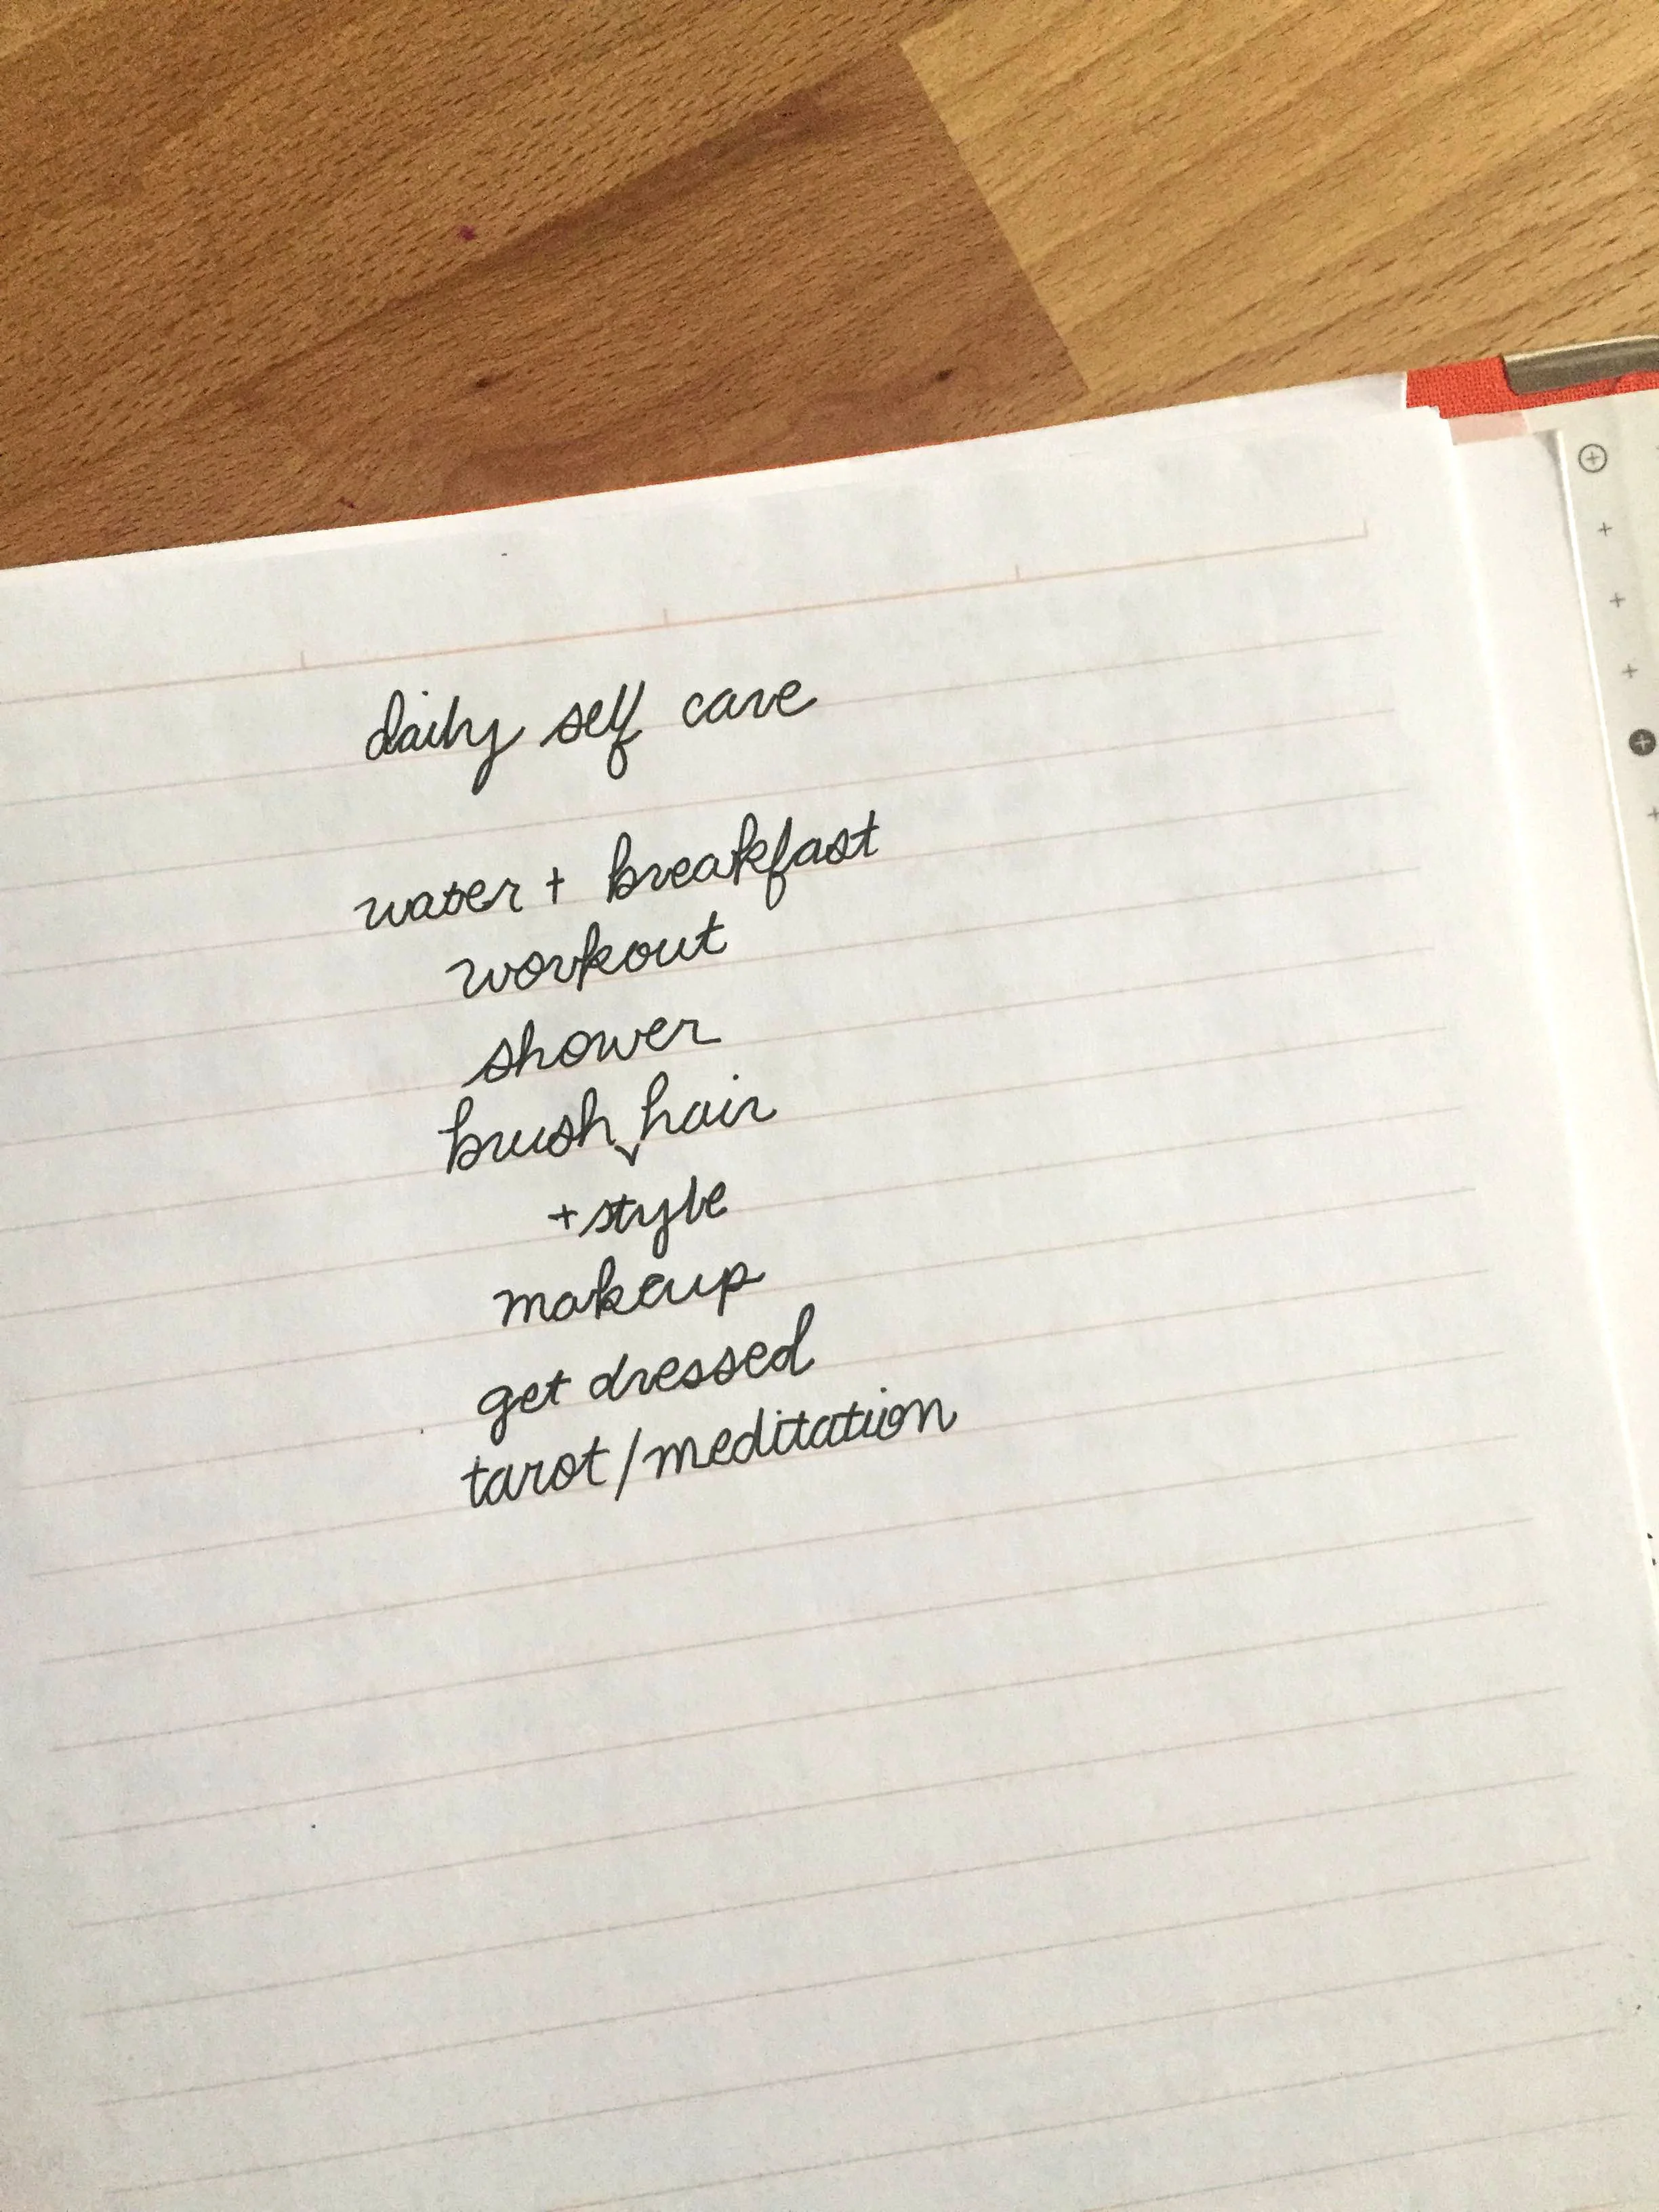 daily self care
water + breakfast
workout
shower
brush hair
+ style
makeup
get dressed
tarot/meditation